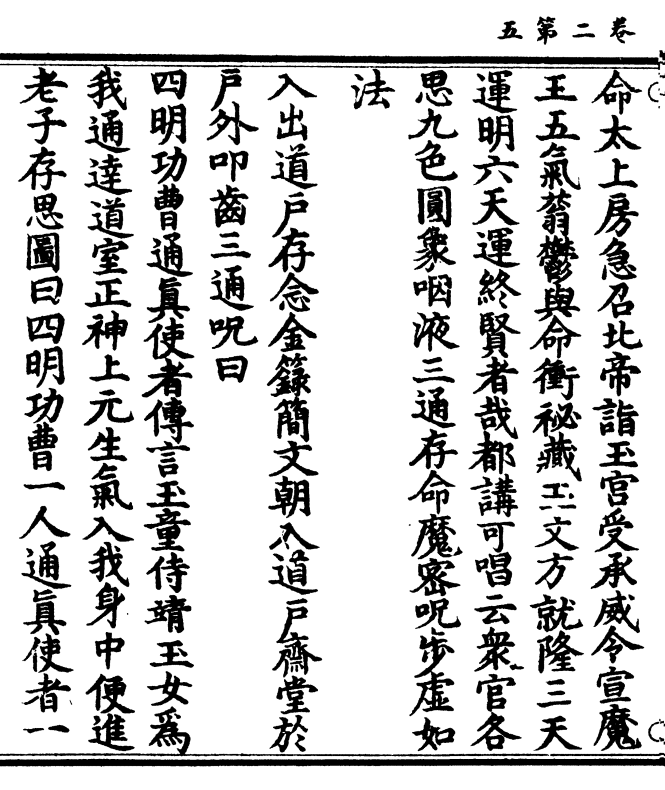 五第二卷
命太上房急召北帝詣玉宮受承威令宣魔
王五氣蓊鬱與命衝祕藏玉文方就隆三天
運明六天運終賢者哉都講可唱云衆官各
思九色圓象咽液三通存命魔密呪步虛如
法
入出道戶存念金籙簡文朝入道戶齋堂於
戶外叩齒三通呪曰
四明功曹通眞使者傳言玉童侍靖玉女爲
我通達道室正神上元生氣入我身中便進
老子存思圖曰四明功曹一人通眞使者一